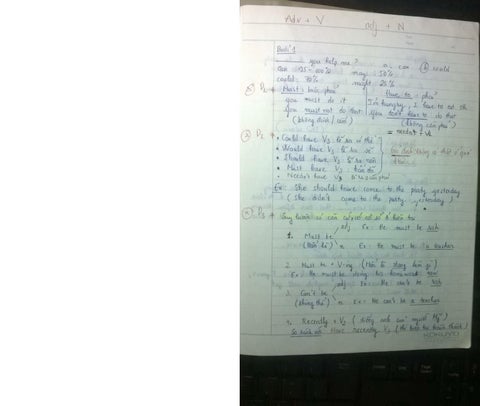 Adv + V adj + N
Buổi 1
you help me? a. can b could
can 95 - 100% may: 50%
could: 70% might: 25%
① D1 Must: bắt phải Have to: phải
You must do it I'm hungry, I have to eat
You must not do that You don't have to do that
(không được / cấm) (không cần phải)
= needn't + V1
② D2
• Could have V3 lẽ ra có thể
• Would have V3 lẽ ra sẽ
• Should have V3 lẽ ra nên
• Must have V3 hẳn đã
• Needn't have V3 lẽ ra cần phải
Ex: She should have come to the party yesterday
(She didn't come to the party yesterday)
③ D3
1. Must be adj Ex: He must be rich
n Ex: He must be a teacher
2. Must be + V-ing (hẳn là đang làm gì)
Ex: He must be doing his homework now
3. Can't be adj Ex: He can't be rich
(không thể) n Ex: He can't be a teacher
4. Recently + V2 (tiếng anh của người Mỹ)
Have recently V3
KOKUYO